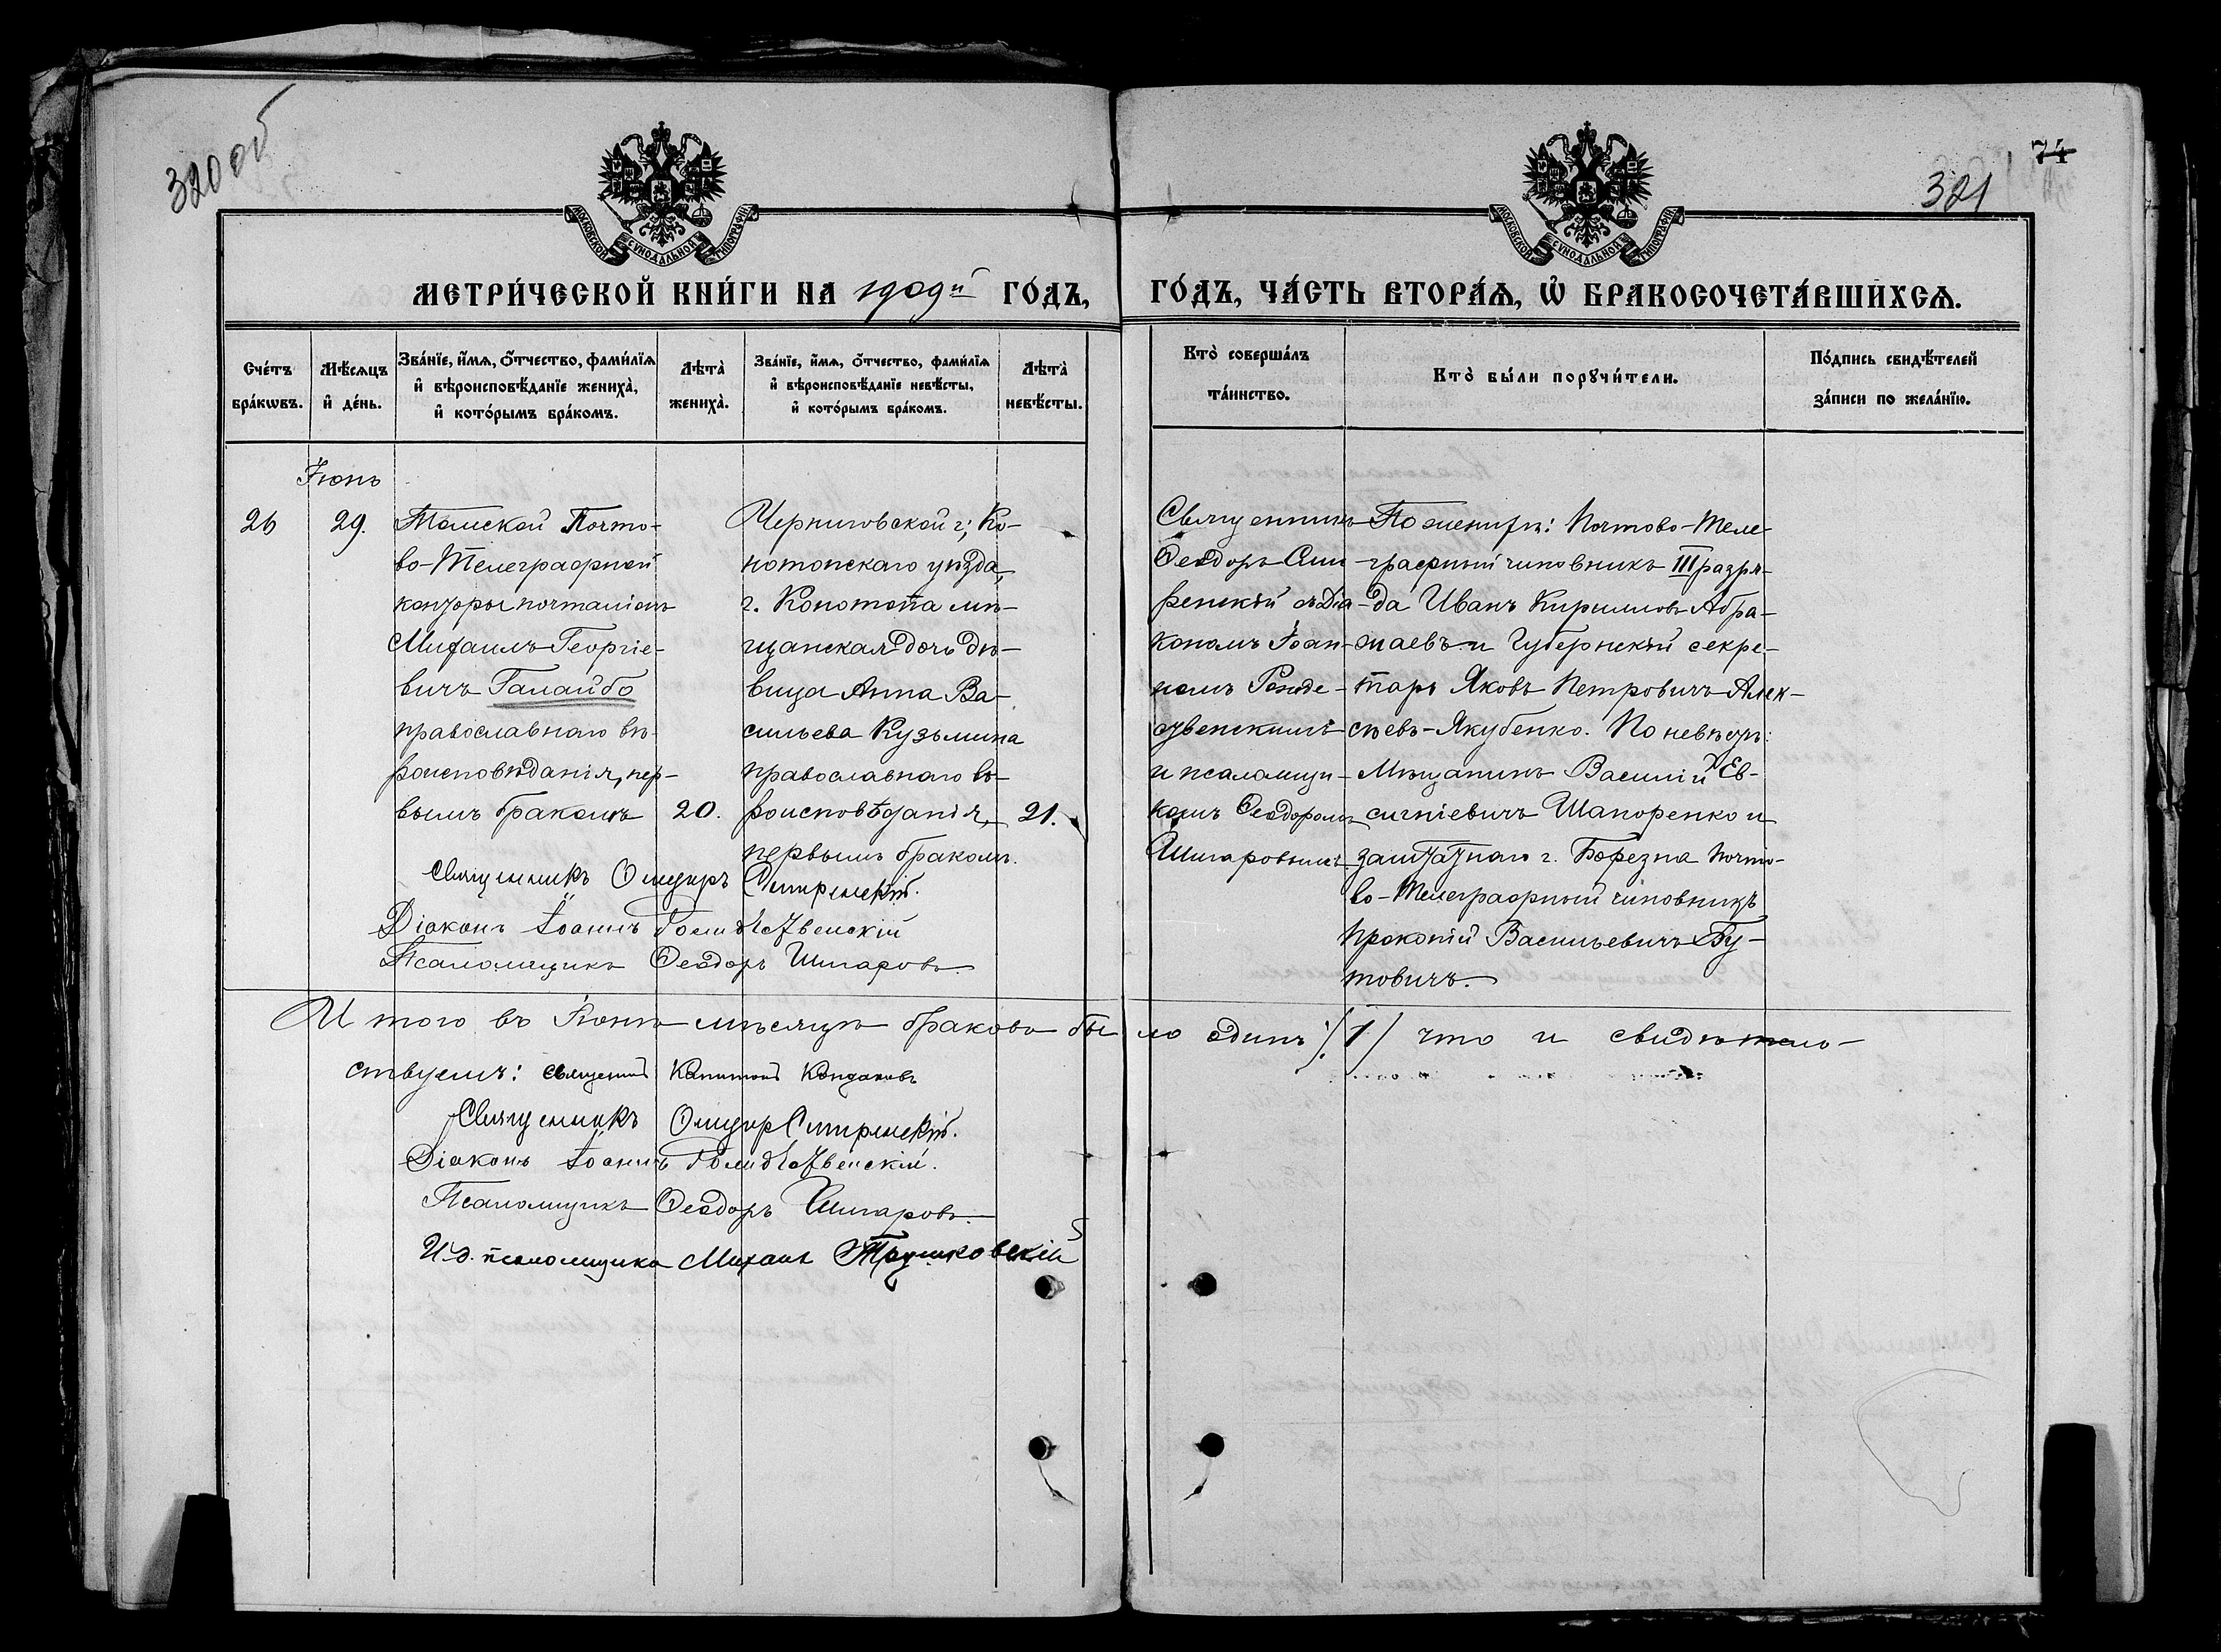 320 об
321
74
МОСКОВСКОЙ СѴНОДАЛЬНОЙ ТИПОГРАФІИ
МОСКОВСКОЙ СѴНОДАЛЬНОЙ ТИПОГРАФІИ
МЕТРИ́ЧЕСКОЙ КНИ́ГИ НА 1909й ГО́ДЪ,
ГО́ДЪ, ЧА́СТЬ ВТОРА́Ѧ, Ѽ БРАКОСОЧЕТА́ВШИХСѦ.
Сче́тъ бра́кѡвъ.
Мѣ́сѧцъ и҆ де́нь.
Зва́нїе, и҆́мѧ, ѻ҆́тчество, фами́лїѧ
и҆ вѣроисповѣ́данїе жениха̀,
и҆ кото́рымъ бра́комъ.
Лѣта̀ жениха̀.
Зва́нїе, и҆́мѧ, ѻ҆́тчество, фами́лїѧ
и҆ вѣроисповѣ́данїе невѣ́сты,
и҆ кото́рымъ бра́комъ.
Лѣта̀ невѣ́сты.
Кто̀ соверша́лъ
та́инство.
Кто̀ бы́ли порꙋчи́тели.
По́дпись свидѣ́телей
за́писи по жела́нїю.
Іюнь
26
29.
Томской Почто-
во-Телеграфной
конторы почталіонъ
Михаилъ Георгіе-
вичъ Галайбо
православнаго вѣ-
роисповѣданія, пер-
вымъ бракомъ
20.
Черниговской г; Ко-
нотопскаго уѣзда,
г. Конотопа мѣ-
щанская дочь дѣ-
вица Анна Ва-
сильева Кузьмина
православнаго вѣ-
роисповѣданія,
первымъ бракомъ.
21.
Священникъ
Ѳеодоръ
съ Діа-
кономъ Іоан-
номъ
и псаломщи-
комъ Ѳеодоромъ
Шмаровымъ
По женихѣ: Почтово-Теле-
графный чиновникъ III разря-
да Иванъ Кирилловъ
и Губернскій секре-
тарь Яковъ Петровичъ Алек-
сѣевъ-Якубенко. По невѣстѣ:
Мѣщанинъ Василій Ев-
сигніевичъ Шапоренко и
заштатнаго г. Березна Почто-
во-Телеграфный чиновникъ
Прокопій Васильевичъ Бу-
товичъ.
Священникъ Ѳеодоръ
Діаконъ Іоаннъ
Псаломщикъ Ѳеодоръ Шмаровъ.
Итого въ Іюнѣ мѣсяцѣ браковъ было одинъ /1/ что и свидѣтель-
ствуемъ: священникъ Капитонъ Кондаковъ
Священникъ Ѳеодоръ
Діаконъ Іоаннъ
Псаломщикъ Ѳеодоръ Шмаровъ.
И.д. псаломщика Михаил